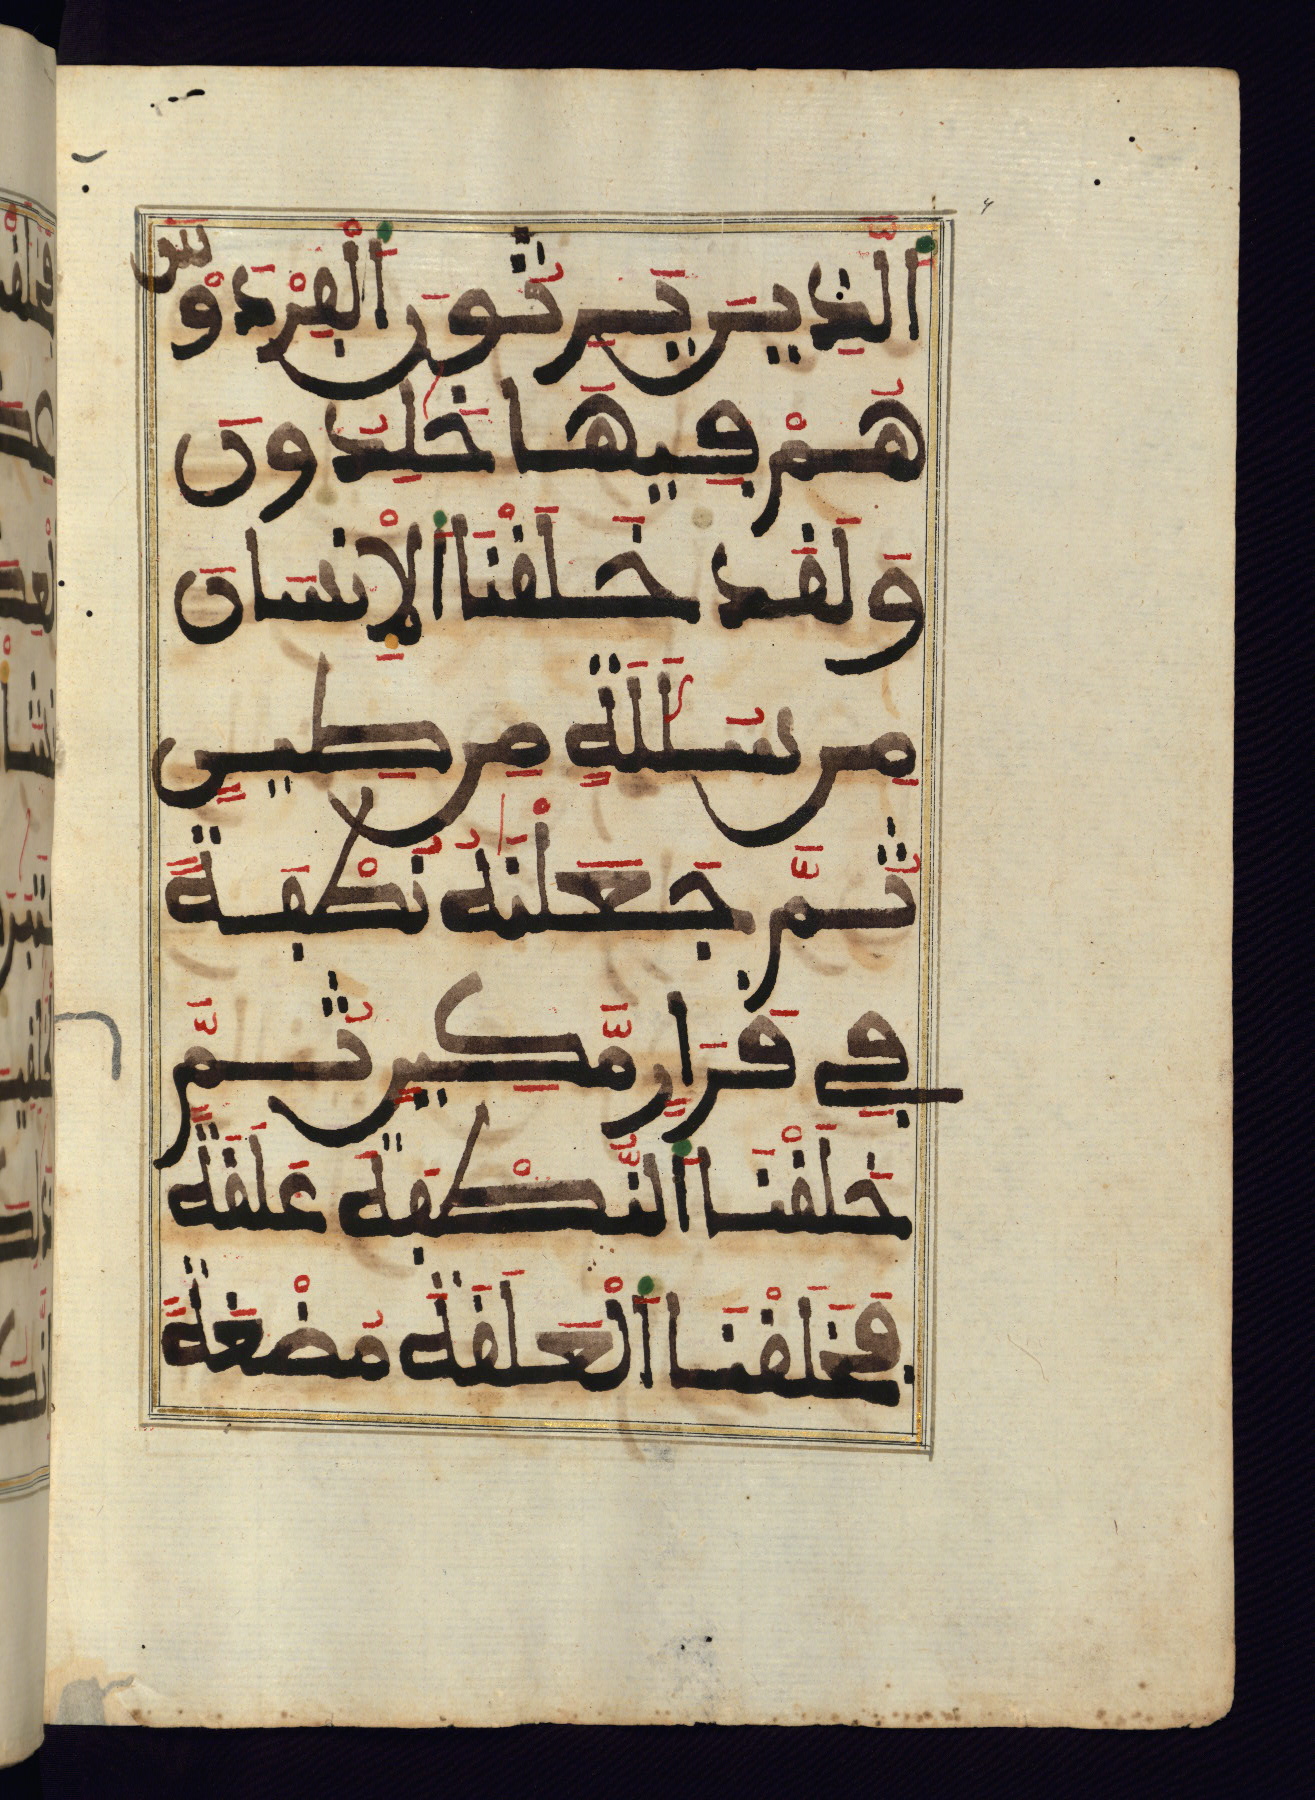 اَلَّذِينَ يَرِثُونَ اَلْفِرْدَوْسَ
هُمْ فِيهَا خَٰلِدُونَ
وَلَقَد خَلَقْنَا اَلْإِنسَانَ
مِن سُلَٰلَةٍ مِن طِينٍ
ثُمَّ جَعَلْنَٰهُ نُطْفَةً
فِي قَرَارٍ مَّكِينٍ ثُمَّ
خَلَقْنَا اَلنُّطْفَةَ عَلَقَةً
فَخَلَقْنَا اَلْعَلَقَةَ مُضْغَةً